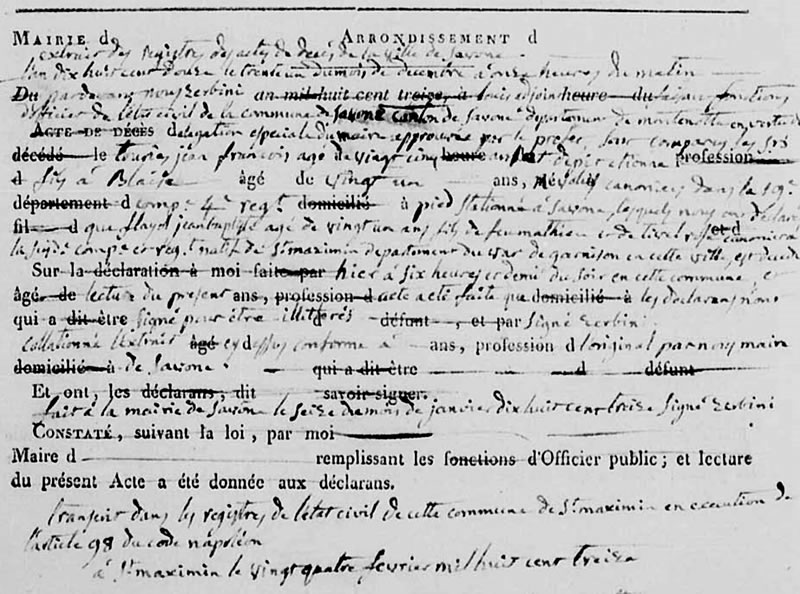 MAIRIE d ARRONDISSEMENT d
extrait des registres des actes de décès de la ville de Savone
l'an dix huit cent douze le trente un du mois de décembre à onze heures du matin
Du par devant nous Zerbini an mil huit cent treize, à adjoint heure du faisant fonctions
d'officier de l'état civil de la commune de Savone canton de Savone département de montenotte en vertu de
ACTE DE DÉCÈS delegation speciale du maire approuvée par le prefet, sont comparus les srs
décédé le jean françois age de vingt cinq heure ans et etienne profession
d fils à Blaise âgé de vingt un ans, canoniers dans la 19e
département d compe 4e regt domicilié à pied stationné à Savone, lesquels nous ont déclaré
fil d que jean baptiste agé de vingt un ans fils de feu mathieu et de et d canonier à
la susde compe et regt natif de St maximin departement du var de garnison en cette ville est decedé
Sur la déclaration à moi faite par hier à six heures et demi du soir en cette commune et
âgé de lecture du present ans, profession d acte a été faite que domicilié à les déclarans nous
qui a dit être signé pour être illiterés d défunt , et par signé Zerbini
collationné l'extrait âgé cy dessus conforme à ans, profession d l'original par nous maire
domicilié à de Savone. qui a dit être d défunt
Et ont, les déclarans, dit savoir signer.
fait à la mairie de Savone le seize du mois de janvier dix huit cent treize signé Zerbini
CONSTATÉ, suivant la loi, par moi
Maire d remplissant les fonctions d'Officier public; et lecture
du présent Acte a été donnée aux déclarans.
transcrit dans les registres de l'etat civil de cette commune de St maximin en execution de
l'article 98 du code napoléon
à St maximin le vingt quatre fevrier mil huit cent treize